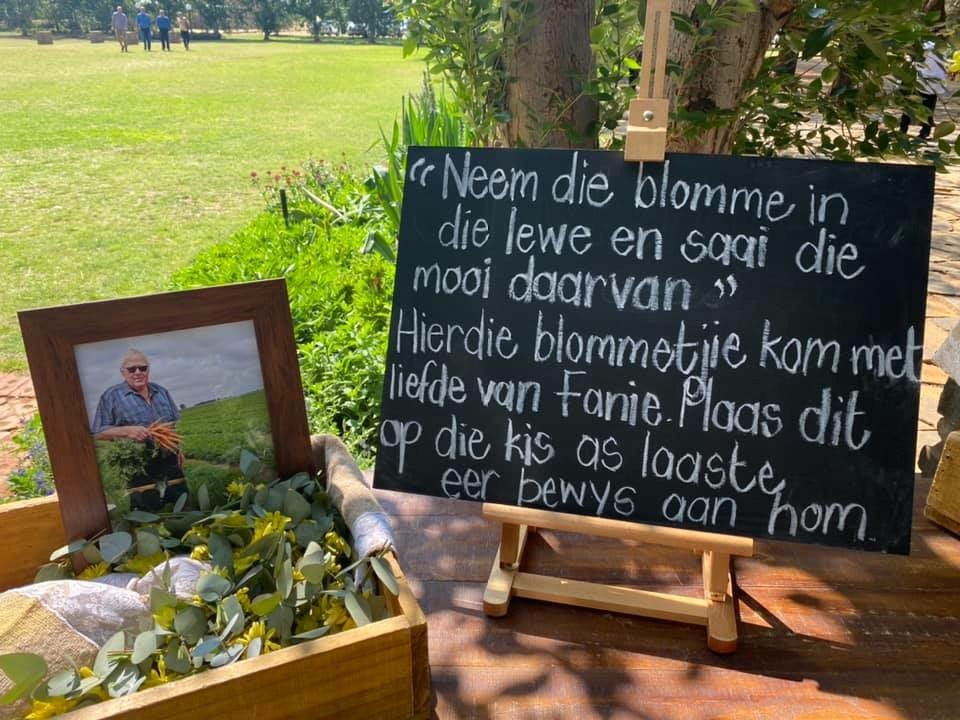 “Neem die blomme in
die lewe en saai die
mooi daarvan”
Hierdie blommetjie kom met
liefde van Fanie. Plaas dit
op die kis as laaste
eer bewys aan hom.